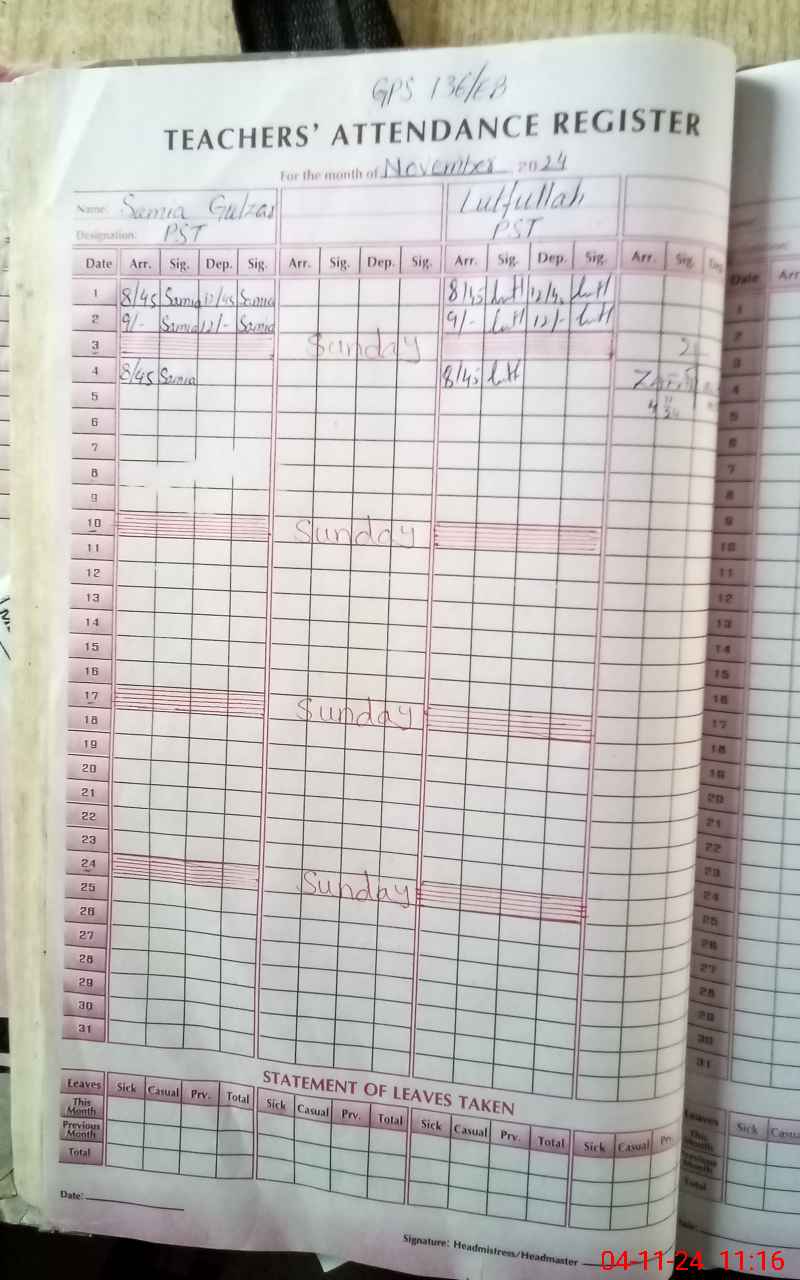 GPS 136/EB
TEACHERS' ATTENDANCE REGISTER
For the month of November 2024
Name: Samia Gulzar Lutfullah
Designation: PST PST
Date Arr. Sig. Dep. Sig. Arr. Sig. Dep. Sig. Arr. Sig. Dep. Sig. Arr. Sig. Date Arr
1 8/45 Samia 12/45 Samia 8/45 Lutf 12/45 Lutf 1
2 9/- Samia 12/- Samia 9/- Lutf 12/- Lutf 2
3 Sunday 3
4 8/45 Samia 8/45 Lutf 4
5 5
6 6
7 7
8 8
9 9
10 Sunday 10
11 11
12 12
13 13
14 14
15 15
16 16
17 Sunday 17
18 18
19 19
20 20
21 21
22 22
23 23
24 Sunday 24
25 25
26 26
27 27
28 28
29 29
30 30
31 31
STATEMENT OF LEAVES TAKEN
Leaves Sick Casual Prv. Total Sick Casual Prv. Total Sick Casual Prv. Total Sick Casual Leaves Sick
This Month This Month
Previous Month Previous Month
Total Total
Date:
Signature: Headmistress/Headmaster
04-11-24 11:16